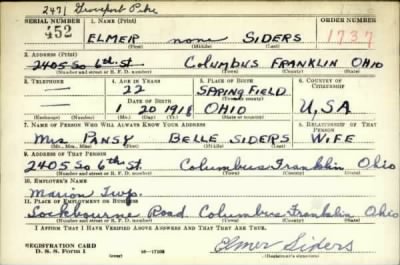 2471 Groveport Pike
SERIAL NUMBER 1. NAME (Print) ORDER NUMBER
452 ELMER none SIDERS 1737
(First) (Middle) (Last)
2. ADDRESS (Print)
2405 So 6th St. COLUMBUS FRANKLIN OHIO
(Number and street or R. F. D. number) (Town) (County) (State)
3. TELEPHONE 4. AGE IN YEARS 5. PLACE OF BIRTH 6. COUNTRY OF CITIZENSHIP
22 SPRINGFIELD
DATE OF BIRTH (Town or county)
1 20 1918 OHIO U,SA
(Exchange) (No.) (Mo.) (Day) (Yr.) (State or country)
7. NAME OF PERSON WHO WILL ALWAYS KNOW YOUR ADDRESS 8. RELATIONSHIP OF THAT PERSON
Mrs PANSY BELLE SIDERS WIFE
(Mr., Mrs., Miss) (First) (Middle) (Last)
9. ADDRESS OF THAT PERSON
2405 So 6th St. Columbus Franklin Ohio
(Number and street or R. F. D. number) (Town) (County) (State)
10. EMPLOYER'S NAME
Marion Twp.
11. PLACE OF EMPLOYMENT OR BUSINESS
Lockbourne Road Columbus Franklin Ohio
(Number and street or R. F. D. number) (Town) (County) (State)
I AFFIRM THAT I HAVE VERIFIED ABOVE ANSWERS AND THAT THEY ARE TRUE.
REGISTRATION CARD Elmer Siders
D. S. S. Form 1 (over) 16-17105 (Registrant's signature)